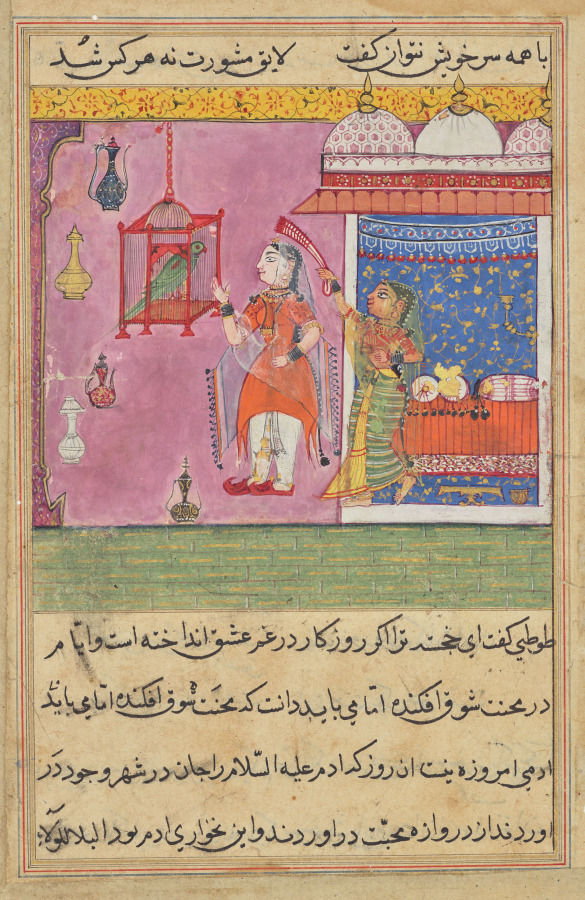 با همه سر خویش نتوان کفت لایق مشورت نه هر کس شد
طوطی کفت ای خجسته ترا اکر روزکار در غم عشق انداخته است و ایام
در محنت شوق افکنده اما می باید دانت که محنت شوق افکنده اما می باید
ادمی امروزه نیت ان روز که ادم علیه السلام را جان در شهر وجود در
اوردند از دروازه محبت در اوردند و این نخواری ادم بود البلا للولا